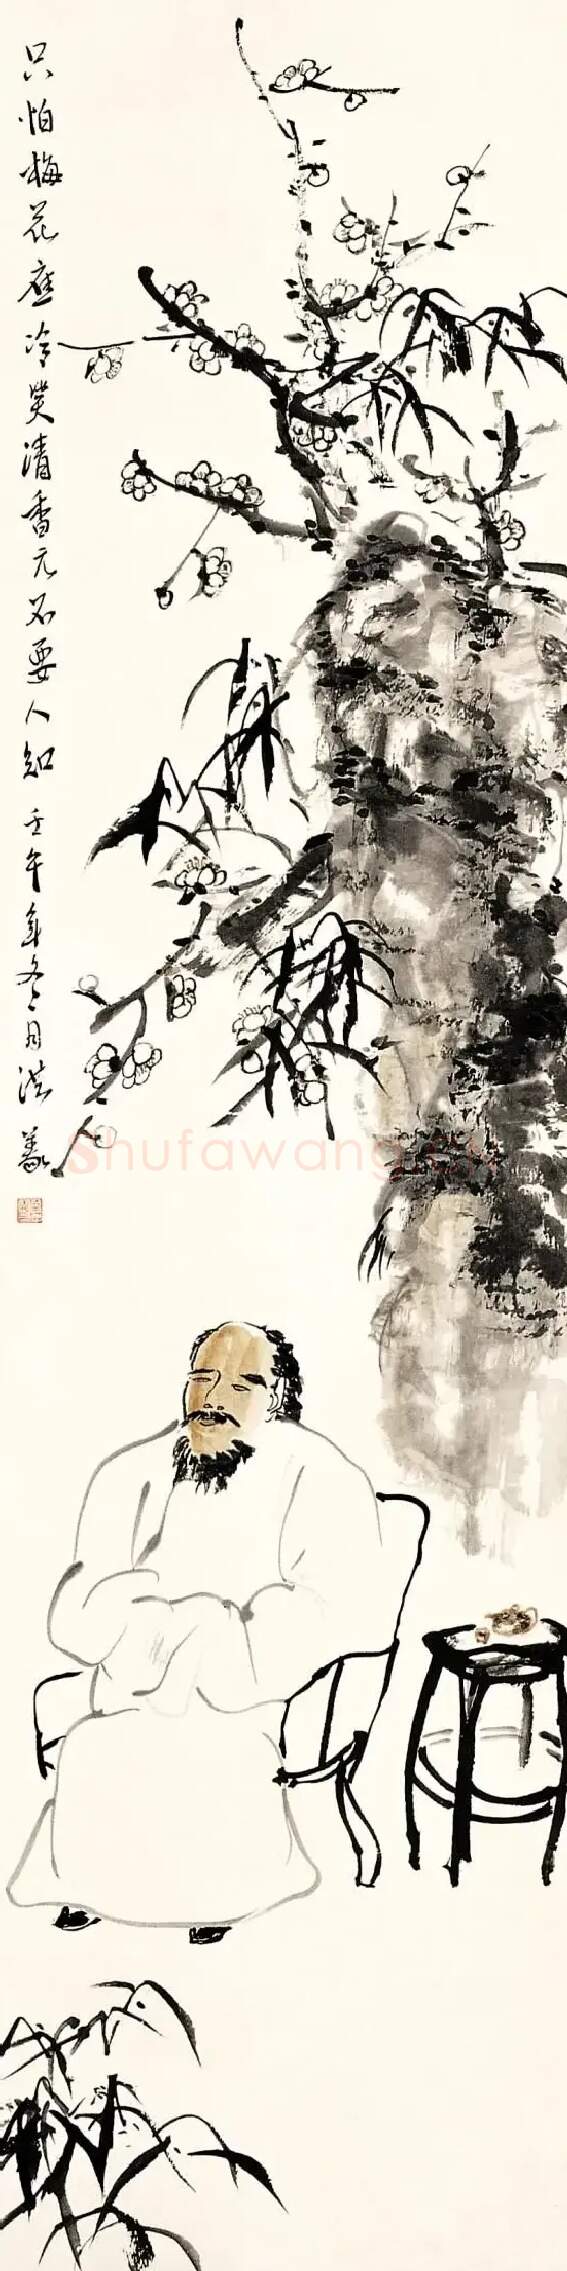 只怕梅花应冷笑清香元不要人知 壬午年冬月洪義
Shufawang.cn